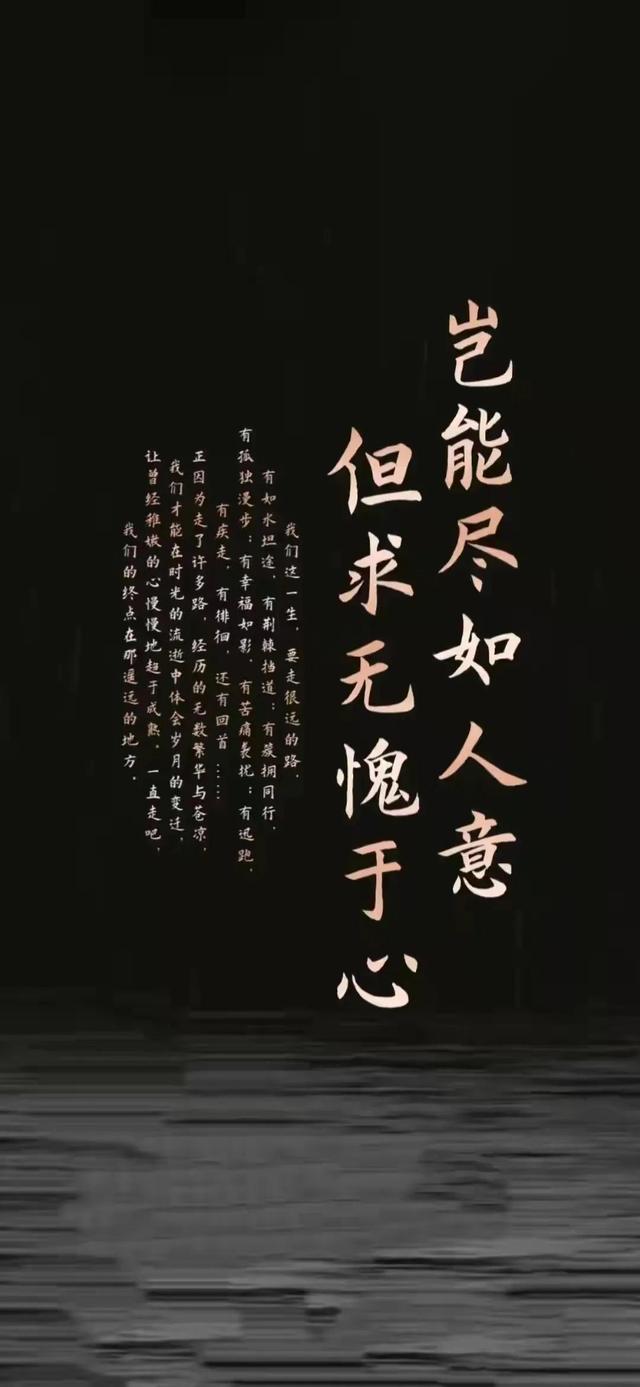 岂能尽如人意
但求无愧于心
我们这一生，要走很远的路，
有如水坦途，有荆棘挡道；有簇拥同行，
有孤独漫步；有幸福如影，有苦痛袭扰；有迅跑，
有疾走，有徘徊，还有回首……
正因为走了许多路，经历的无数繁华与苍凉，
我们才能在时光的流逝中体会岁月的变迁，
让曾经稚嫩的心慢慢地趋于成熟，一直走吧，
我们的终点在那遥远的地方，